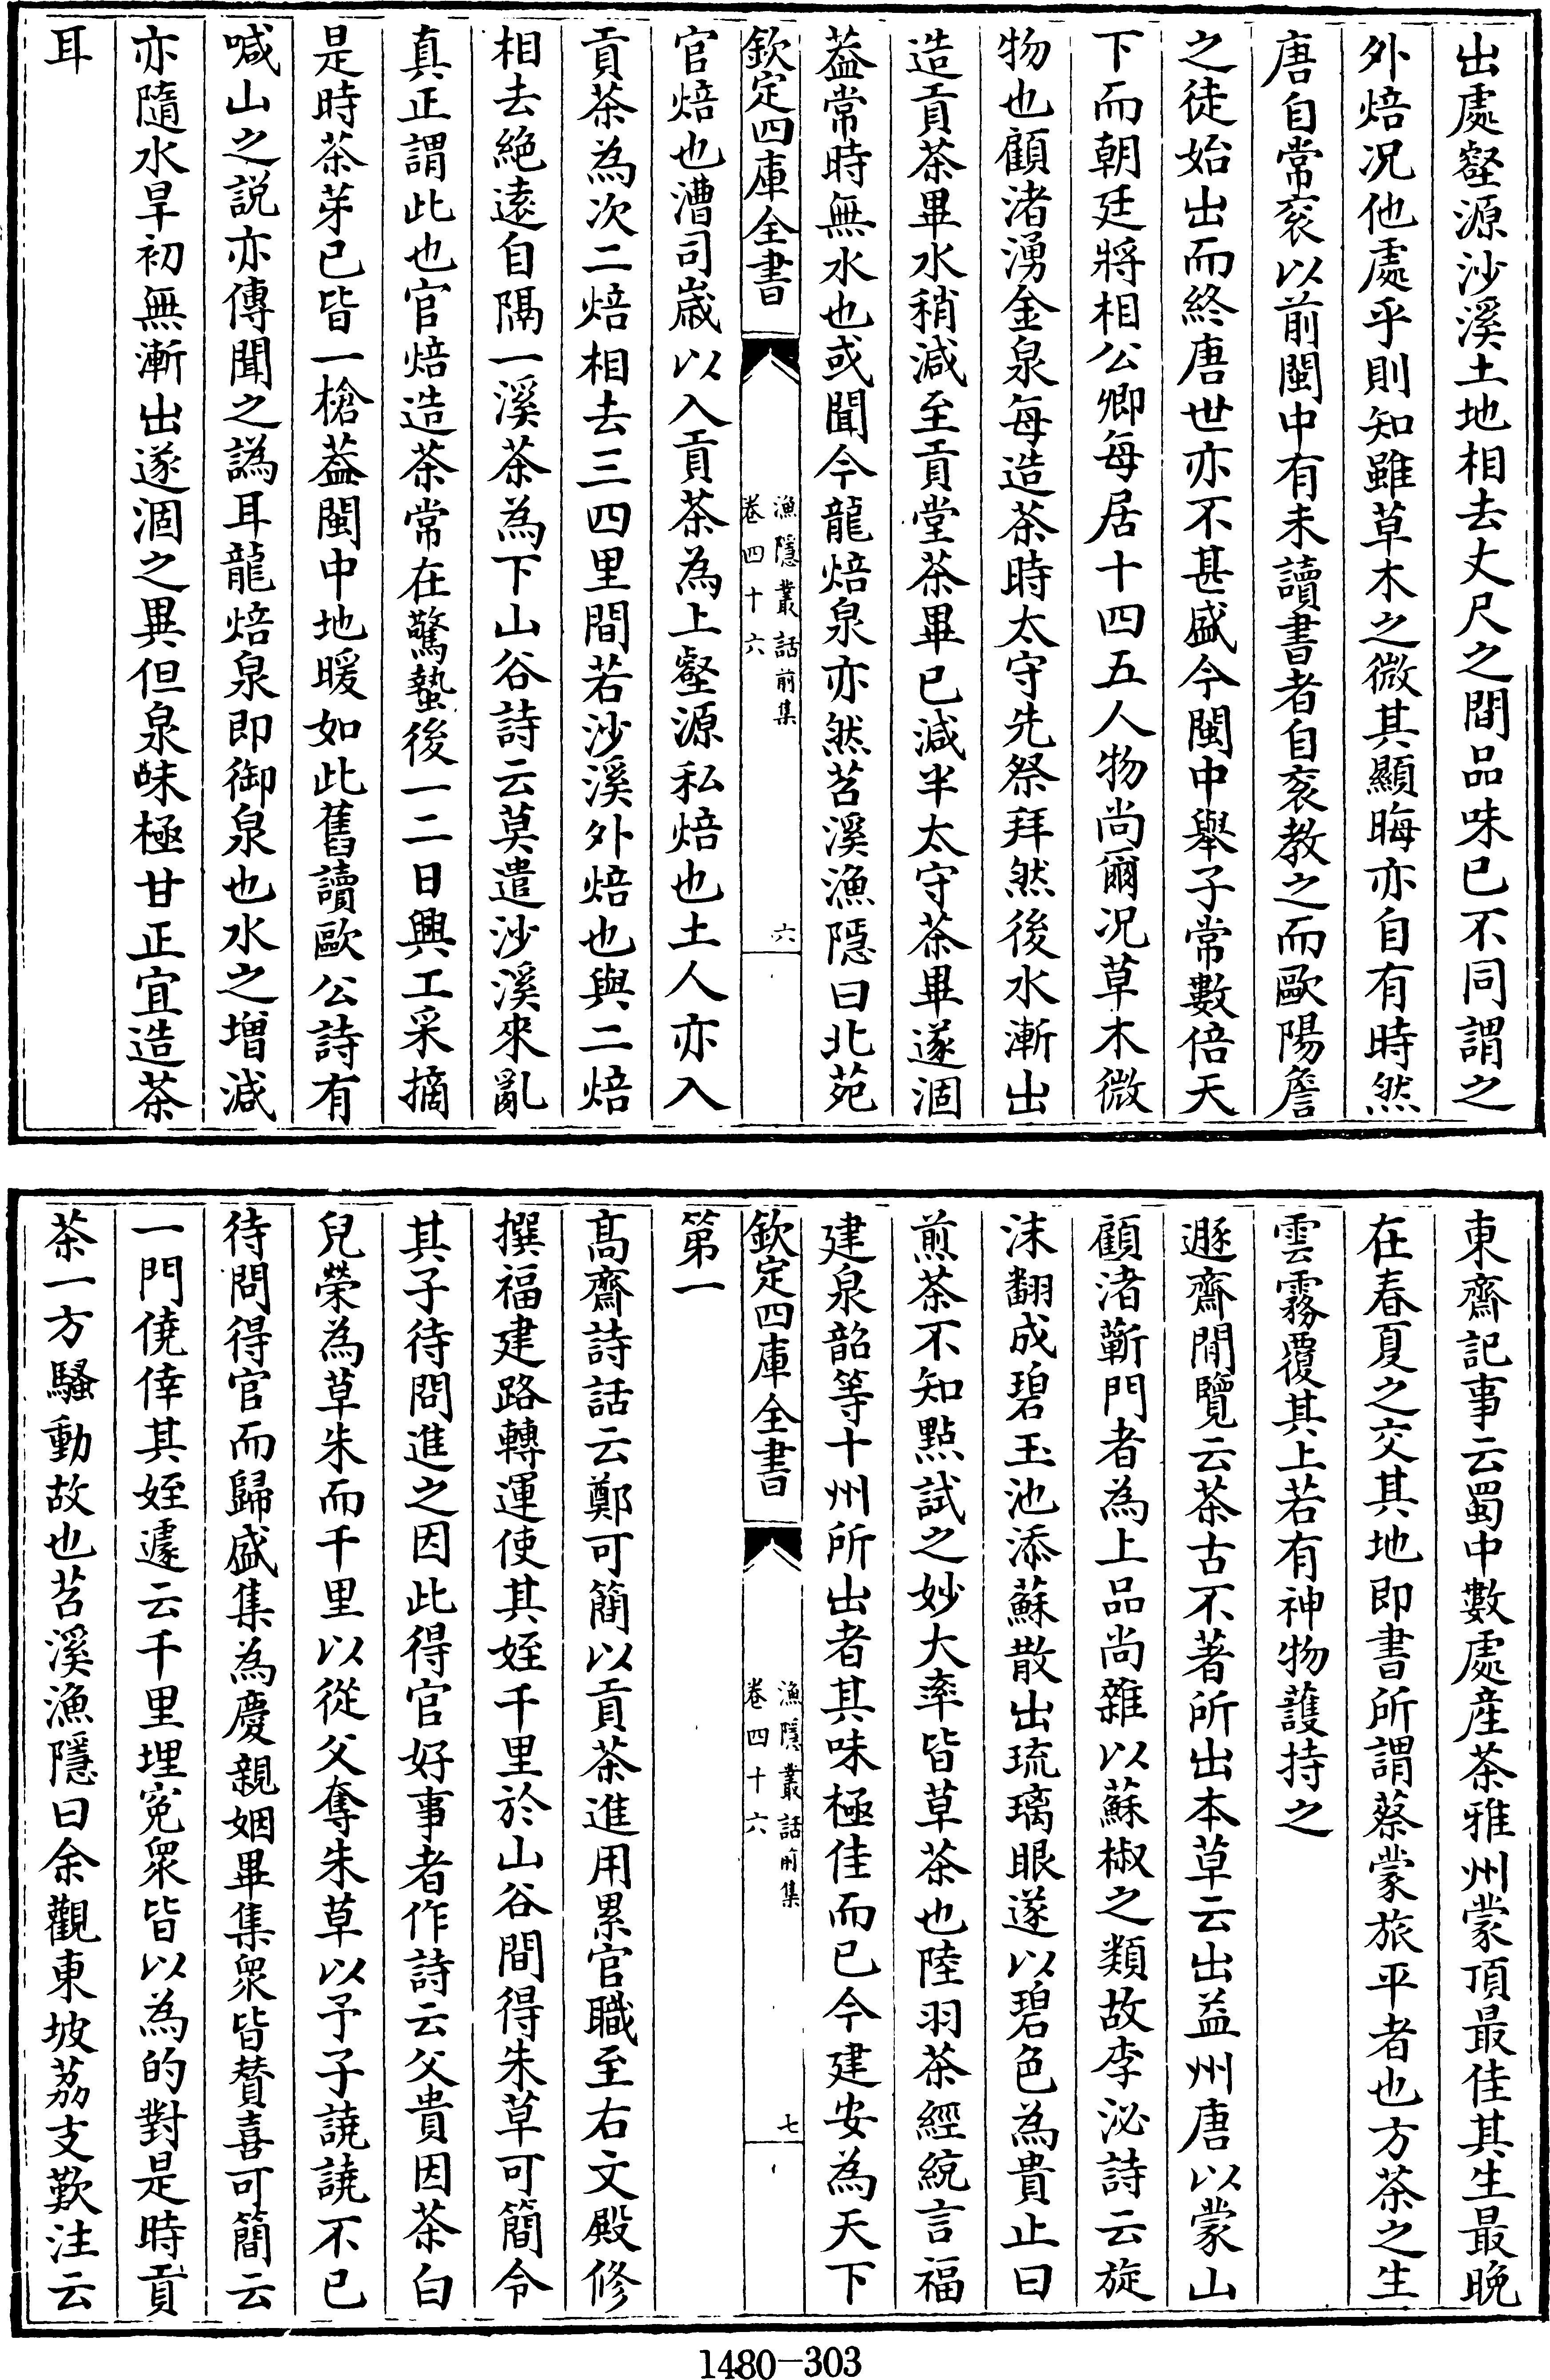 出處壑源沙溪土地相去丈尺之間品味已不同謂之
外焙况他處乎則知雖草木之微其顯晦亦自有時然
唐自常衮以前閩中有未讀書者自衮教之而歐陽詹
之徒始出而終唐世亦不甚盛今閩中舉子常數倍天
下而朝廷將相公卿每居十四五人物尚爾况草木微
物也顧渚湧金泉每造茶時太守先祭拜然後水漸出
造貢茶畢水稍減至貢堂茶畢已減半太守茶畢遂涸
蓋常時無水也或聞今龍焙泉亦然苕溪漁隱曰北苑
欽定四庫全書
漁隱叢話前集
卷四十六
六
官焙也漕司歲以入貢茶為上壑源私焙也土人亦入
貢茶為次二焙相去三四里間若沙溪外焙也與二焙
相去絶遠自隔一溪茶為下山谷詩云莫遣沙溪來亂
真正謂此也官焙造茶常在驚蟄後一二日興工采摘
是時茶芽已皆一槍蓋閩中地暖如此舊讀歐公詩有
喊山之説亦傳聞之譌耳龍焙泉即御泉也水之增減
亦隨水旱初無漸出遂涸之異但泉味極甘正宜造茶
耳
東齋記事云蜀中數處産茶雅州蒙頂最佳其生最晚
在春夏之交其地即書所謂蔡蒙旅平者也方茶之生
雲霧覆其上若有神物護持之
遯齋閒覽云茶古不著所出本草云出益州唐以蒙山
顧渚蘄門者為上品尚雜以蘇椒之類故李泌詩云旋
沫翻成碧玉池添蘇散出琉璃眼遂以碧色為貴止曰
煎茶不知點試之妙大率皆草茶也陸羽茶經統言福
建泉韶等十州所出者其味極佳而已今建安為天下
欽定四庫全書
漁隱叢話前集
卷四十六
七
第一
高齋詩話云鄭可簡以貢茶進用累官職至右文殿修
撰福建路轉運使其姪千里於山谷間得朱草可簡令
其子待問進之因此得官好事者作詩云父貴因茶白
兒榮為草朱而千里以從父奪朱草以予子譊譊不已
待問得官而歸盛集為慶親姻畢集衆皆賛喜可簡云
一門僥倖其姪遽云千里埋寃衆皆以為的對是時貢
茶一方騷動故也苕溪漁隱曰余觀東坡荔支歎注云
1480-303